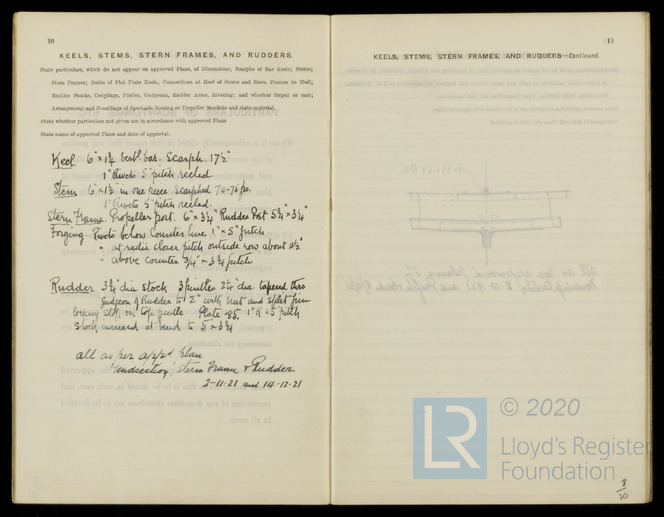 10
KEELS, STEMS, STERN FRAMES, AND RUDDERS.
State particulars, which do not appear on approved Plans, of Dimensions; Scarphs of Bar Keels; Stems;
Stern Frames; Butts of Flat Plate Keels; Connections at Heel of Stems and Stern Frames to Hull;
Rudder Stocks, Couplings, Pintles, Gudgeons, Rudder Arms, Riveting; and whether forged or cast;
Arrangement and Scantlings of Spectacle Bossing or Propeller Brackets and state material.
State whether particulars not given are in accordance with approved Plans
State name of approved Plans and date of approval.
Keel 6" x 1¾ bar. Scarph 17½"
1" Rivets 5" pitch reeled.
Stem 6" x 1½" in one piece Scarphed
1" Rivets 5" pitch reeled.
Stern Frame. Propeller post. 6" x 3¼" Rudder Post 5¾ x 3¼"
Forging Rivets below Counter line 1" x 5" pitch
" at radii closer pitch outside row about
" above counter ¾" - 3¾ pitch
Rudder 3¾ dia Stock 3 pintles 2¼" dia. tapered thro
Gudgeon of Rudder to 1¾ 2" with nut and split pin
locking on top pintle Plate .85. 1" R x 5" pitch
Stock increased at bend to 5" x 3¾
all as per app'd plan
Midsection, Stern Frame & Rudder
2-11-21 and 14-12-21
11
KEELS, STEMS, STERN FRAMES, AND RUDDERS—Continued.
© 2020
LR
Lloyd's Register
Foundation
8
30